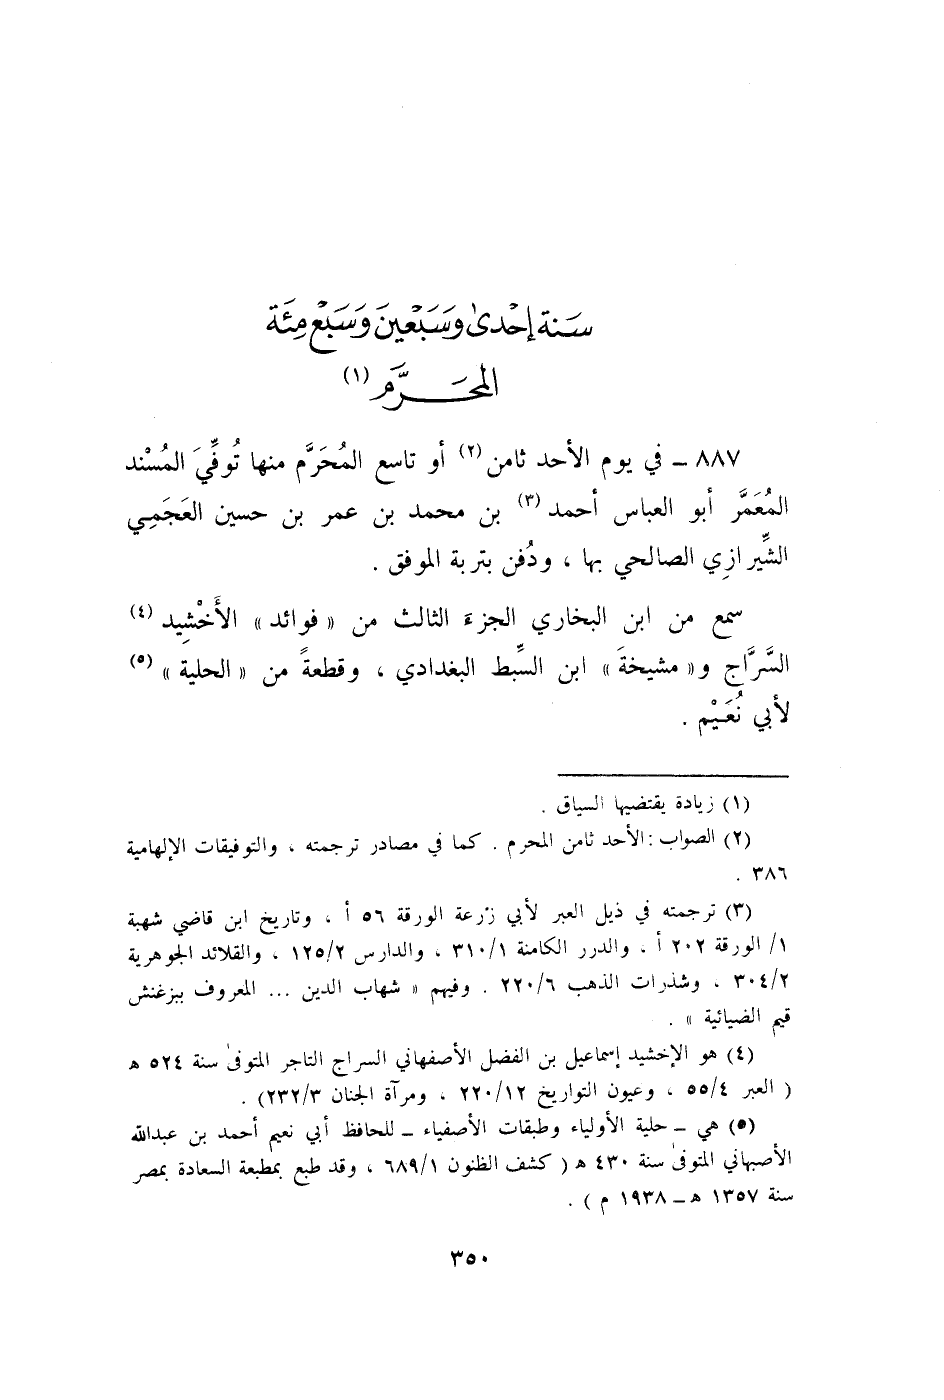 سَنة إحْدىٰ وسَبَعْينَ وَسَبَعْ مِئَة
المحَرَّم (١)
٨٨٧ ــ في يوم الأحد ثامن (٢) أو تاسع المُحَرَّم منها تُوفِّيَ المُسْند
المُعَمَّر أبو العباس أحمد (٣) بن محمد بن عمر بن حسين العَجَمِي
الشِّيرازِي الصالحي بها ، ودُفن بتربة الموفق .
سمع من ابن البخاري الجزءَ الثالث من « فوائد » الأَخْشِيد (٤)
السَّرَّاج و« مشيخةَ » ابن السِّبط البغدادي ، وقطعةً من « الحلية » (٥)
لأبي نُعَيْم .
(١) زيادة يقتضيها السياق .
(٢) الصواب : الأحد ثامن المحرم . كما في مصادر ترجمته ، والتوفيقات الإلهامية
٣٨٦ .
(٣) ترجمته في ذيل العبر لأبي زرعة الورقة ٥٦ أ ، وتاريخ ابن قاضي شهبة
١/ الورقة ٢٠٢ أ ، والدرر الكامنة ٣١٠/١ ، والدارس ١٢٥/٢ ، والقلائد الجوهرية
٣٠٤/٢ ، وشذرات الذهب ٢٢٠/٦ . وفيهم « شهاب الدين ... المعروف ببزغنش
قيم الضيائية » .
(٤) هو الإخشيد إسماعيل بن الفضل الأصفهاني السراج التاجر المتوفىٰ سنة ٥٢٤ ه
( العبر ٥٥/٤ ، وعيون التواريخ ٢٢٠/١٢ ، ومرآة الجنان ٢٣٢/٣) .
(٥) هي ــ حلية الأولياء وطبقات الأصفياء ــ للحافظ أبي نعيم أحمد بن عبدالله
الأصبهاني المتوفىٰ سنة ٤٣٠ ه ( كشف الظنون ٦٨٩/١ ، وقد طبع بمطبعة السعادة بمصر
سنة ١٣٥٧ هـ ــ ١٩٣٨ م ) .
٣٥٠